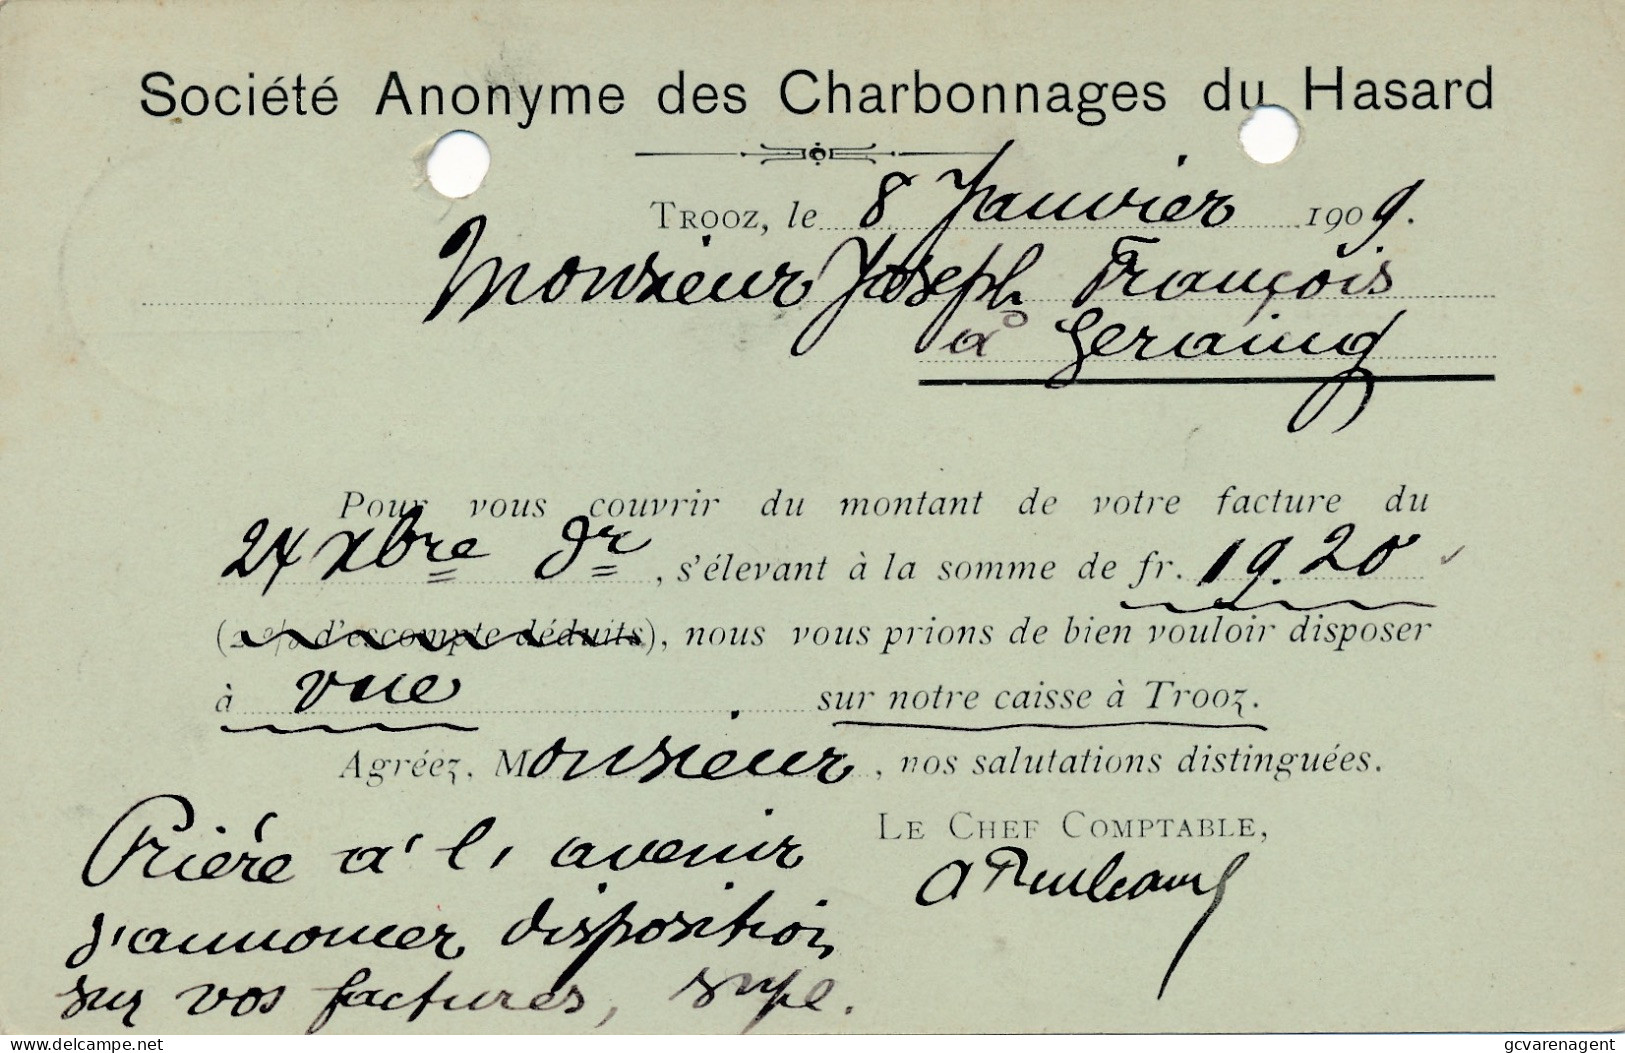 Société Anonyme des Charbonnages du Hasard
Trooz, le 8 Janvier 1909.
Monsieur Joseph François
à Seraing
Pour vous couvrir du montant de votre facture du
24 Xbre dr, s'élevant à la somme de fr. 19.20
(2 % d'escompte déduits), nous vous prions de bien vouloir disposer
à vue sur notre caisse à Trooz.
Agréez, Monsieur, nos salutations distinguées.
Le Chef Comptable,
Prière à l'avenir
d'annoncer disposition
sur vos factures, svpl.
delcampe.net
gcvarenagent